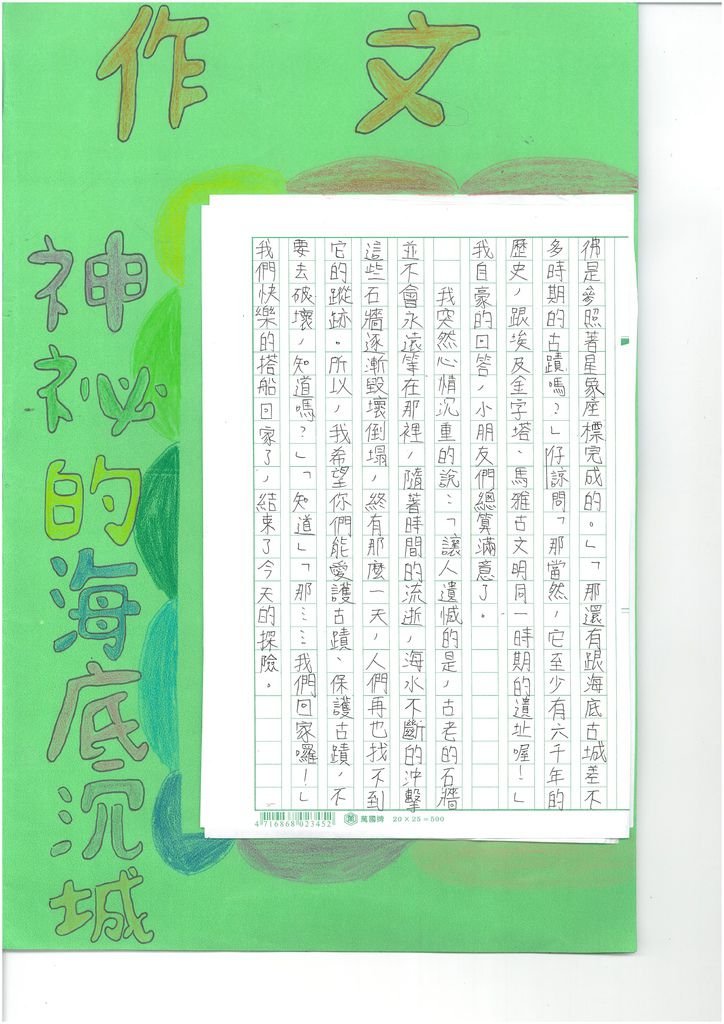 作文
神祕的海底沉城
彿是參照著星象座標完成的。」「那還有跟海底古城差不
多時期的古蹟嗎？」仔諒問「那當然，它至少有六千年的
歷史，跟埃及金字塔、馬雅古文明同一時期的遺址喔！」
我自豪的回答，小朋友們總算滿意了。
我突然心情沉重的說：「讓人遺憾的是，古老的石牆
並不會永遠筆在那裡，隨著時間的流逝，海水不斷的沖擊
這些石牆逐漸毀壞倒塌，終有那麼一天，人們再也找不到
它的蹤跡。所以，我希望你們能愛護古蹟、保護古蹟，不
要去破壞，知道嗎？」「知道」「那……我們回家囉！」
我們快樂的搭船回家了，結束了今天的探險。
4 716868 023452
萬國牌 20×25＝500